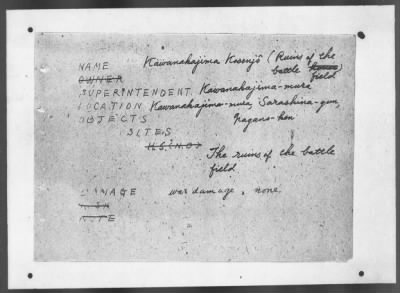 NAME Kawanakajima Kosenjō (Ruins of the
battle field)
OWNER
SUPERINTENDENT Kawanakajima-mura
LOCATION Kawanakajima-mura, Sarashina-gun,
OBJECTS Nagano-ken
SITES
The ruins of the battle
field
war damage, none.